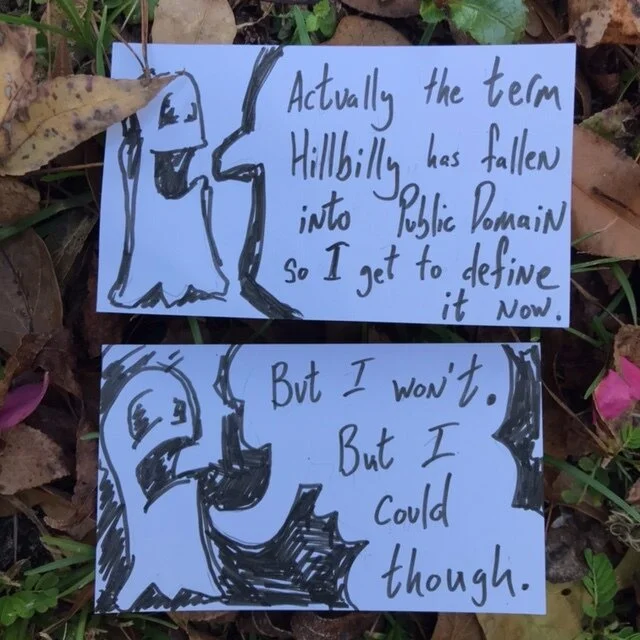 Actually the term
Hillbilly has fallen
into Public Domain
so I get to define
it now.
But I won't.
But I
could
though.